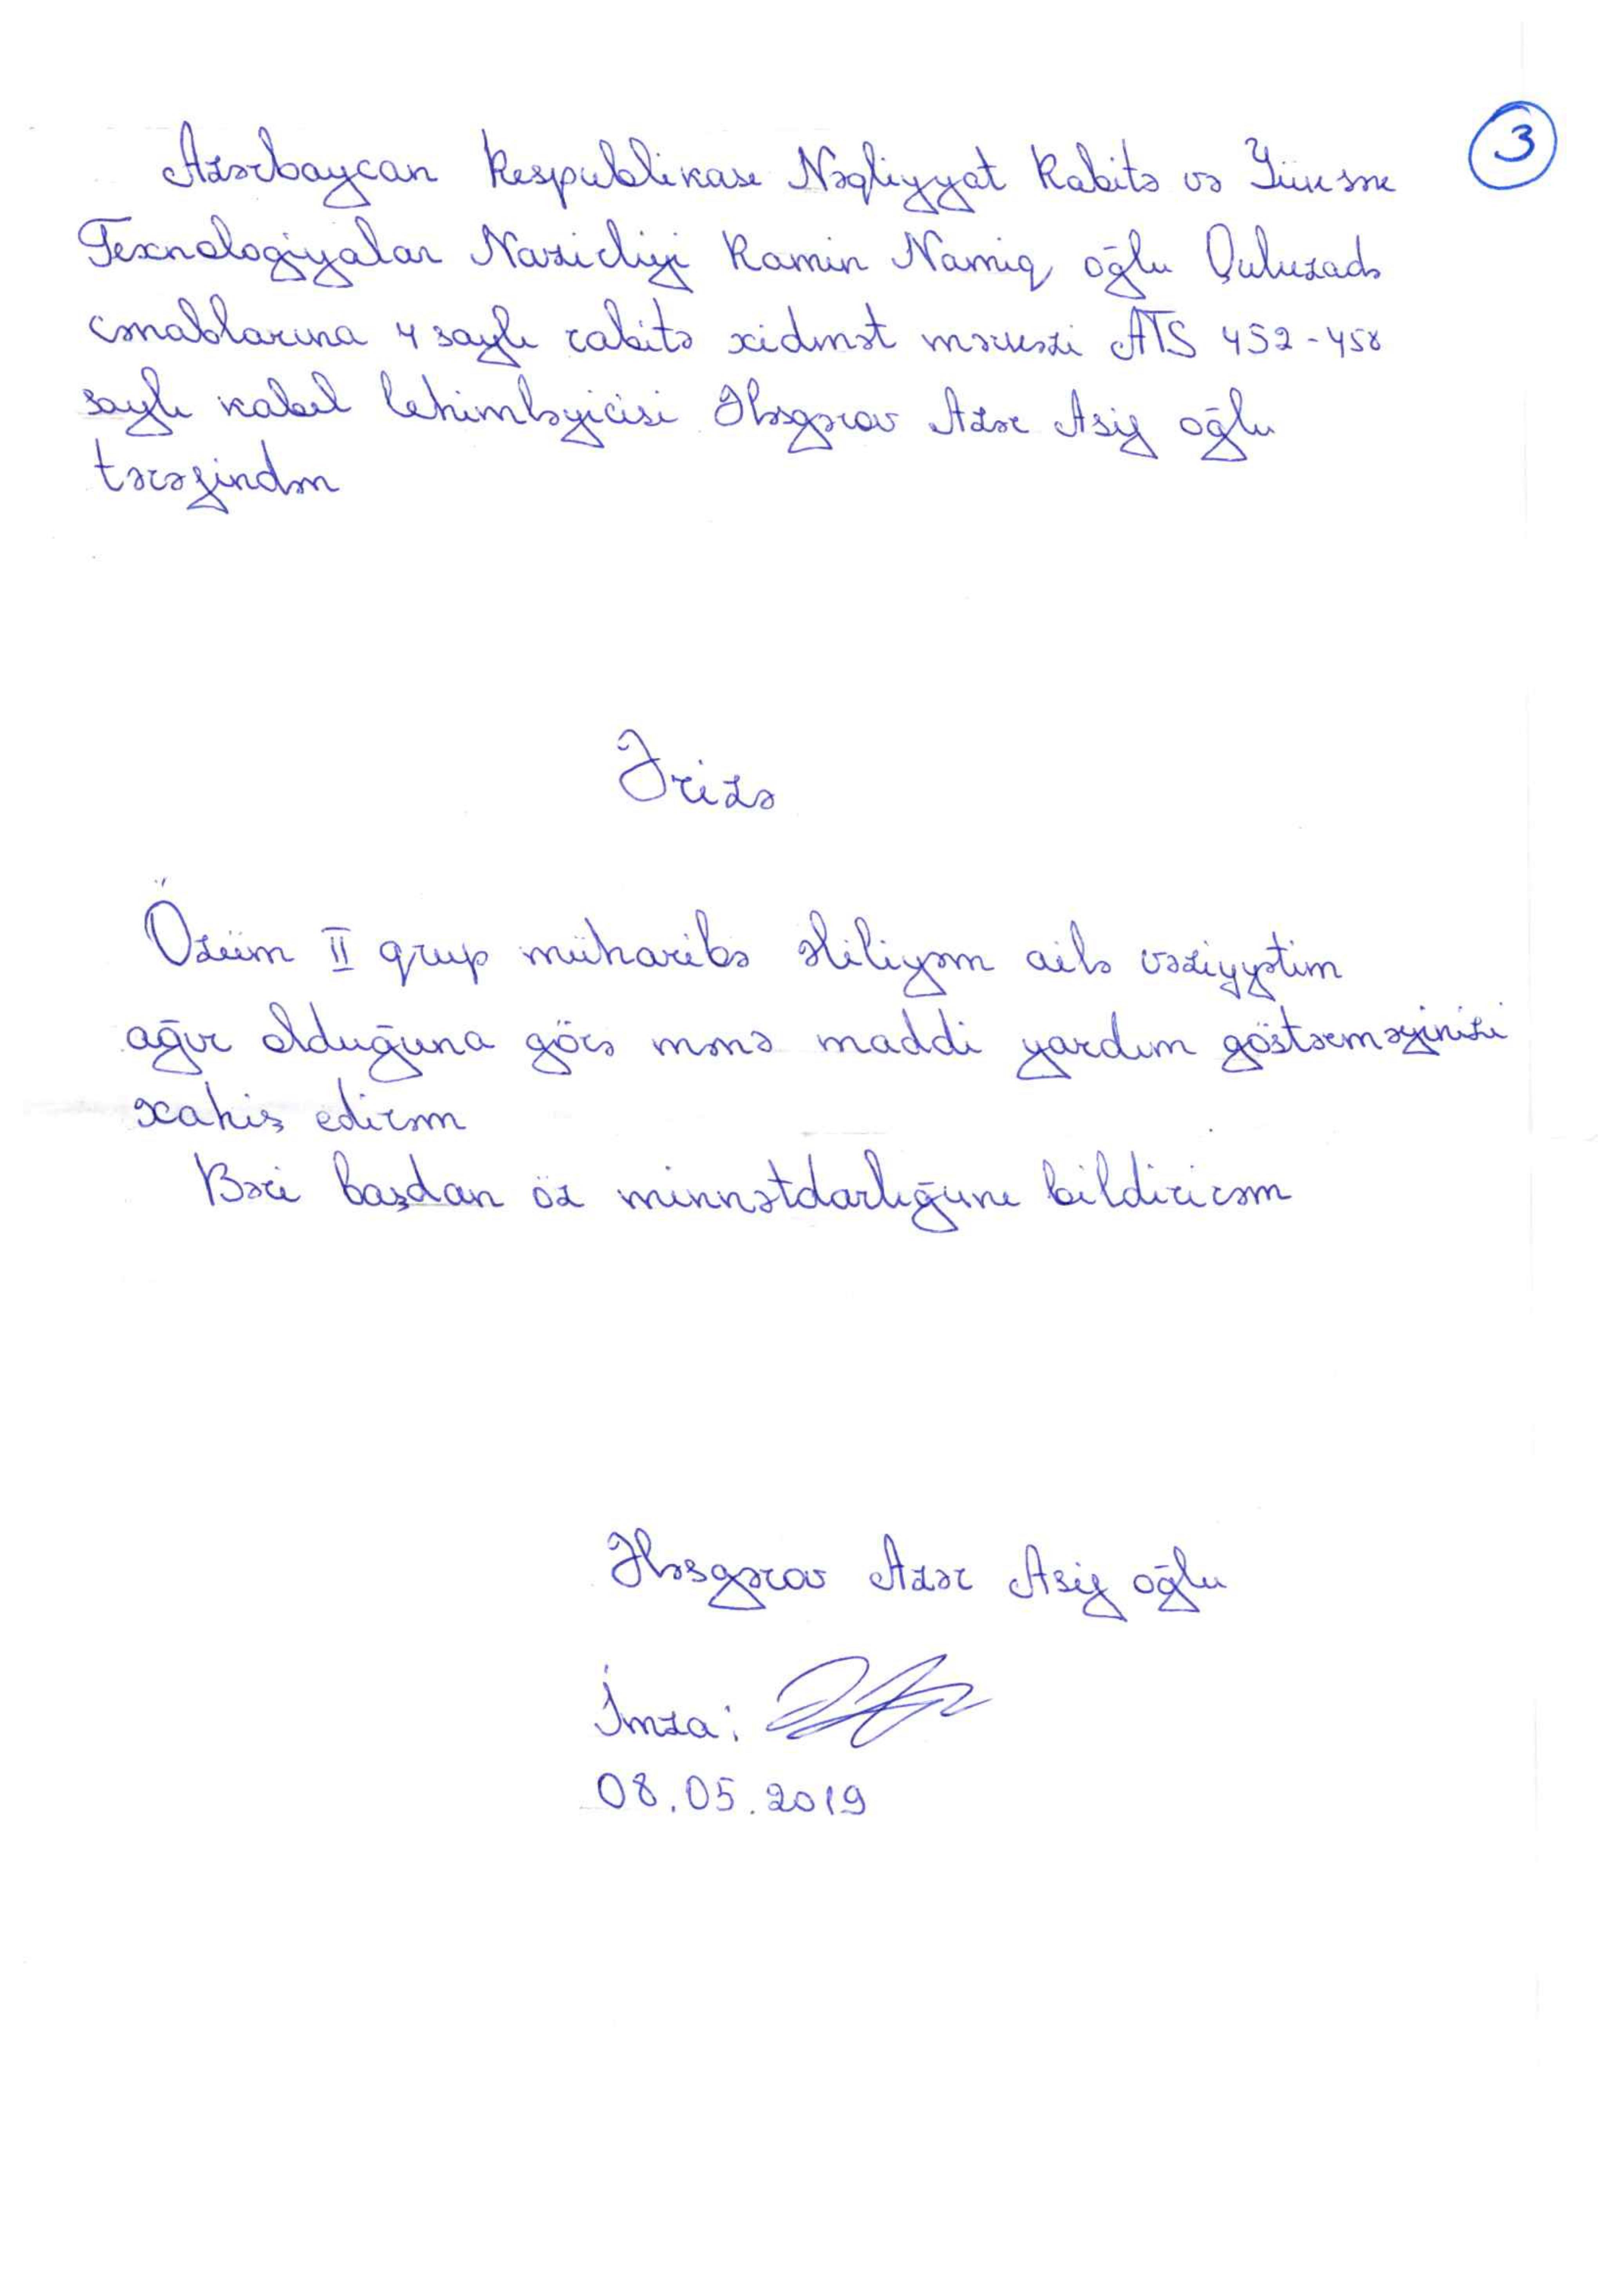 3
Azərbaycan Respublikası Nəqliyyat Rabitə və Yüksək
Texnologiyalar Nazirliyi Ramin Namiq oğlu Quluzadə
cənablarına 4 saylı rabitə xidmət mərkəzi ATS 452-458
saylı kabel lehimləyicisi Ələsgərov Azər Asif oğlu
tərəfindən
Ərizə
Özüm II qrup müharibə əliliyəm ailə vəziyyətim
ağır olduğuna görə mənə maddi yardım göstərməyinizi
xahiş edirəm
Bəri başdan öz minnətdarlığımı bildirirəm
Ələsgərov Azər Asif oğlu
İmza:
08.05.2019